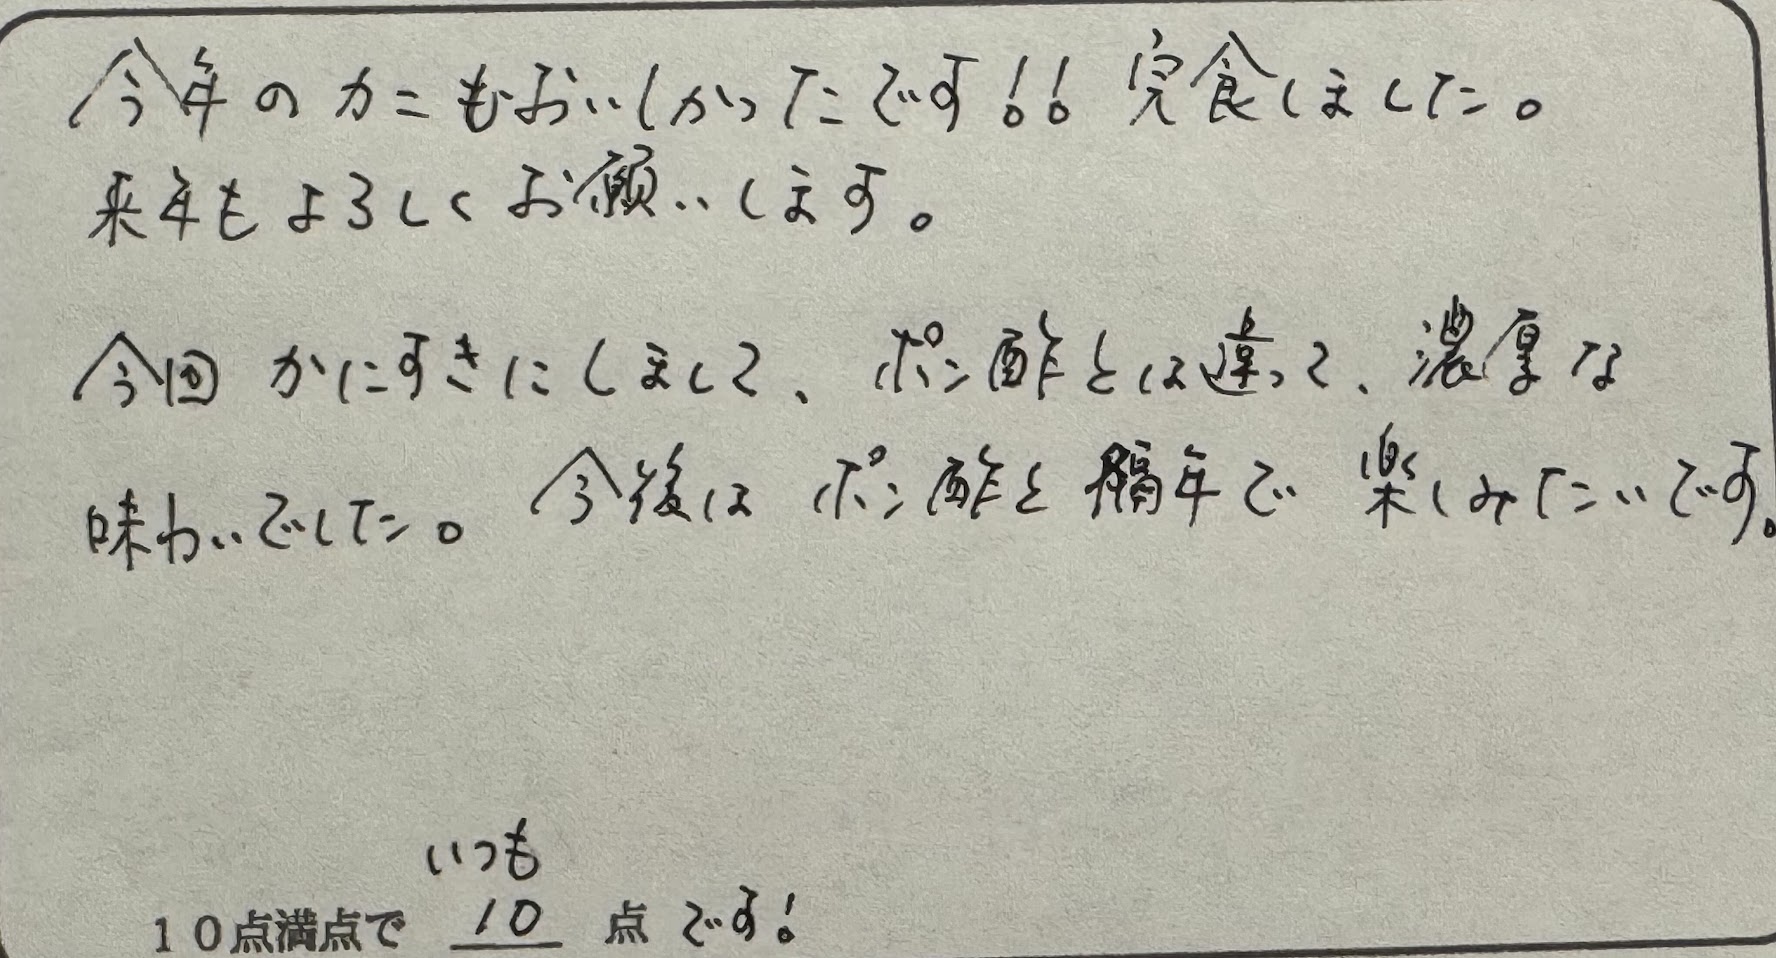 今年のカニもおいしかったです!! 完食しました。
来年もよろしくお願いします。
今回 かにすきにしまして、ポン酢とは違って、濃厚な
味わいでした。今後は ポン酢と隔年で 楽しみたいです。
いつも
10点満点で 10 点 です!